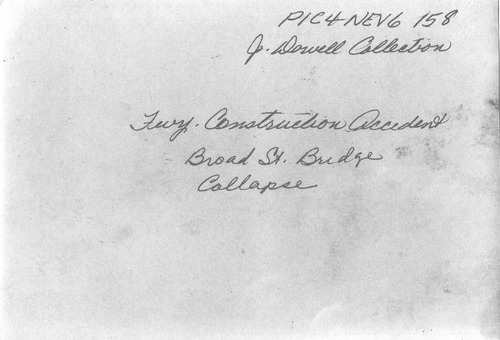 PIC4-NEV6 158
J. Dowell Collection
Fwy. Construction Accident
Broad St. Bridge
Collapse